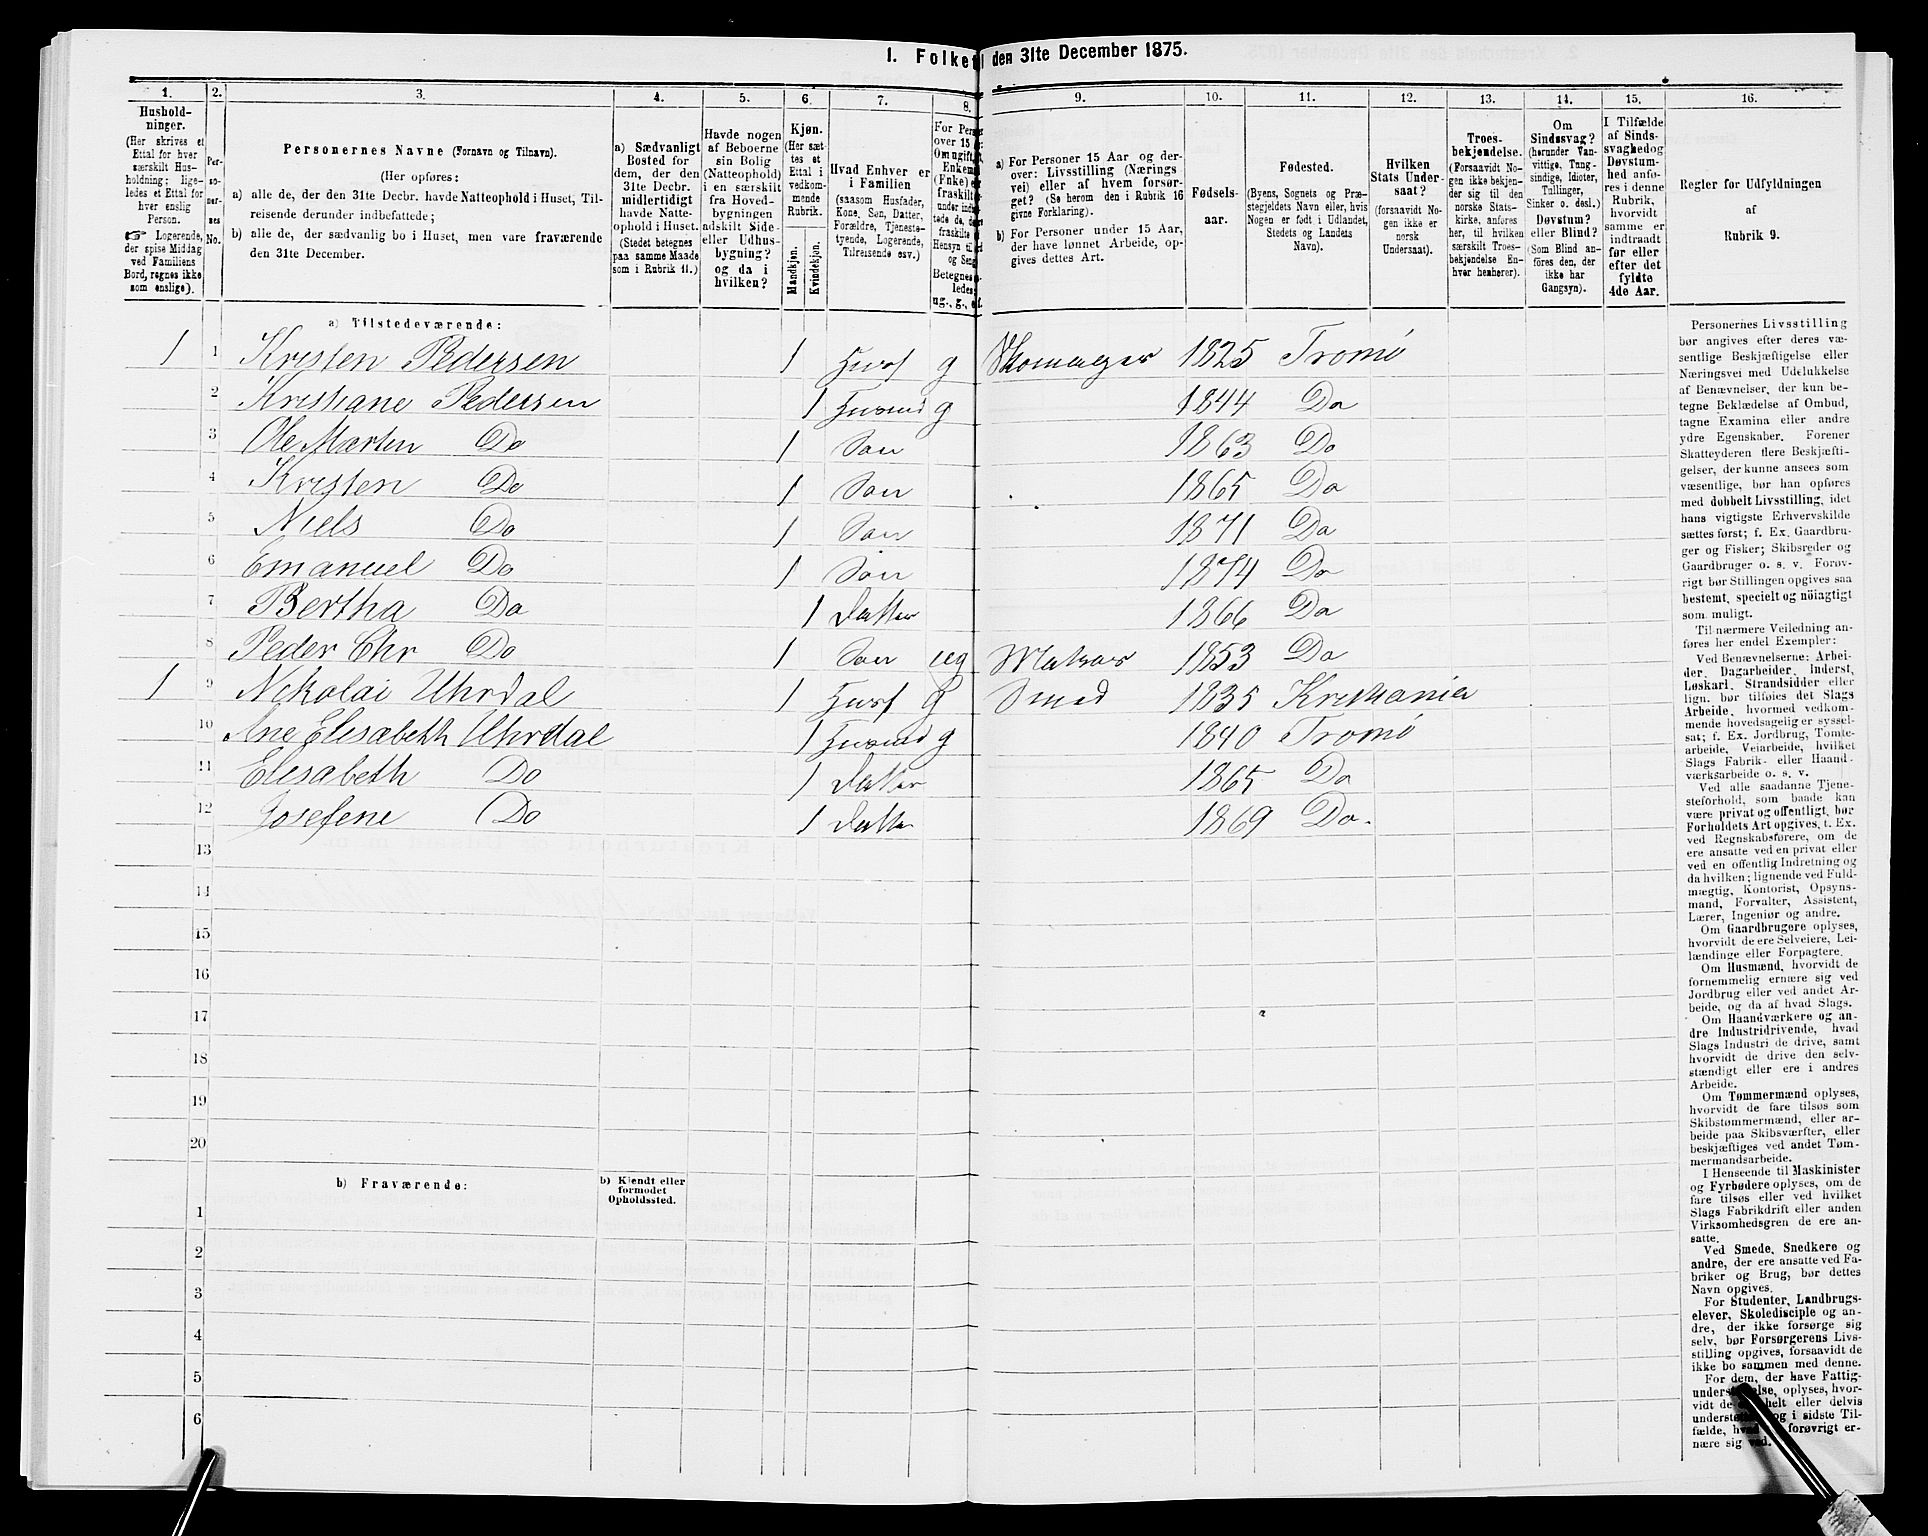 1. Folket
den 31te December 1875.
1.
2.
3.
4.
5.
6.
7.
8.
9.
10.
11.
12.
13.
14.
15.
16.
Hushold-
ninger.
(Her skrives et
Ettal for hver
særskilt Hus-
holdning; lige-
ledes et Ettal for
hver enslig
Person.
☞ Logerende,
der spise Middag
ved Familiens
Bord, regnes ikke
som enslige).
Per-
so-
ner-
nes
No.
Personernes Navne (Fornavn og Tilnavn).
(Her opføres:
a) alle de, der den 31te Decbr. havde Natteophold i Huset, Til-
reisende derunder indbefattede;
b) alle de, der sædvanlig bo i Huset, men vare fraværende
den 31te December.
a) Sædvanligt
Bosted for
dem, der den
31te Decbr.
midlertidigt
havde Natte-
ophold i Huset.
(Stedet betegnes
paa samme Maade
som i Rubrik 11.)
Havde nogen
af Beboerne
sin Bolig
(Natteophold)
i en særskilt
fra Hoved-
bygningen
adskilt Side-
eller Udhus-
bygning?
og da i
hvilken?
Kjøn.
(Her sæt-
tes et
Ettal i
vedkom-
mende
Rubrik.
Mandkjøn.
Kvindekjøn.
Hvad Enhver er
i Familien
(saasom Husfader,
Kone, Søn, Datter,
Forældre, Tjeneste-
tyende, Logerende,
Tilreisende osv.)
For Per
over 15
Om ugift,
Enkem
(Enke)
fraskilt
under ind
tede de,
fraskilte
Hensyn til
og Seng
Betegnes
ledes:
ug., g., e
a) For Personer 15 Aar og der-
over: Livsstilling (Nærings
vei) eller af hvem forsør-
get? (Se herom den i Rubrik 16
givne Forklaring).
b) For Personer under 15 Aar,
der have lønnet Arbeide, op-
gives dettes Art.
Fødsels-
aar.
Fødested.
(Byens, Sognets og Præ-
stegjeldets Navn eller, hvis
Nogen er født i Udlandet,
Stedets og Landets
Navn).
Hvilken
Stats Under-
saat?
(forsaavidt No-
gen ikke er
norsk
Undersaat).
Troes-
bekjendelse.
(Forsaavidt No-
gen ikke bekjen-
der sig til den
norske Stats-
kirke, anføres
her, til hvilken
særskilt Troes-
bekjendelse En-
hver henhører).
Om
Sindssvag?
(herunder Van-
vittige, Tung-
sindige, Idioter,
Tullinger,
Sinker o. desl.)
Døvstum?
eller Blind?
(Som Blind an-
føres den, der
ikke har
Gangsyn).
I Tilfælde
af Sinds-
svaghed og
Døvstum-
hed anfø-
res i denne
Rubrik,
hvorvidt
samme er
indtraadt
før eller
efter det
fyldte
4de Aar.
Regler for Udfyldningen
af
Rubrik 9.
a) Tilstedeværende:
1 1 Kristen Pedersen 1 Husf g Skomager 1825 Tromø
2 Kristiane Pedersen 1 Husmd g 1844 Do
3 Ole Marten Do 1 Søn 1863 Do
4 Kristen Do 1 Søn 1865 Do
5 Niels Do 1 Søn 1871 Do
6 Emanuel Do 1 Søn 1874 Do
7 Bertha Do 1 Datter 1866 Do
8 Peder Chr Do 1 Søn ug Matros 1853 Do
1 9 Nikolai Uhrdal 1 Husf g Smed 1835 Kristiania
10 Ane Elisabeth Uhrdal 1 Husmd g 1840 Tromø
11 Elisabeth Do 1 Datter 1865 Do
12 Josefene Do 1 Datter 1869 Do.
13
14
15
16
17
18
19
20
b) Fraværende:
b) Kjendt eller
formodet
Opholdssted.
1
2
3
4
5
6
Personernes Livsstilling
bør angives efter deres væ-
sentlige Beskjæftigelse eller
Næringsvei med Udelukkelse
af Benævnelser, der kun be-
tegne Beklædelse af Ombud,
tagne Examina eller andre
ydre Egenskaber. Forener
Skatteyderen flere Beskjæfti-
gelser, der kunne ansees som
væsentlige, bør han opføres
med dobbelt Livsstilling, idet
hans vigtigste Erhvervskilde
sættes først; f. Ex. Gaardbru-
ger og Fisker; Skibsreder og
Gaardbruger o. s. v. Forøv-
rigt bør Stillingen opgives saa
bestemt, specielt og nöiagtigt
som muligt.
Til nærmere Veiledning an-
føres her endel Exempler:
Ved Benævnelserne: Arbei-
der, Dagarbeider, Inderst,
Løskarl, Strandsidder eller
lign. bør tilføies det Slags
Arbeide, hvormed vedkom-
mende hovedsagelig er syssel-
sat; f. Ex. Jordbrug, Tomte-
arbeide, Veiarbeide, hvilket
Slags Fabrik- eller Haand-
værksarbeide o. s. v.
Ved alle saadanne Tjene-
steforhold, som baade kan
være privat og offentligt, bør
Forholdets Art opgives, t. Ex.
ved Regnskabsførere, om de
ere ansatte ved en privat eller
ved en offentlig Indretning og
da hvilken; lignende ved Fuld-
mægtig, Kontorist, Opsyns-
mand, Forvalter, Assistent,
Lærer, Ingeniør og andre.
Om Gaardbrugere oplyses,
hvorvidt de ere Selveiere, Lei-
lændinge eller Forpagtere.
Om Husmænd, hvorvidt de
fornemmelig ernære sig ved
Jordbrug eller ved andet Ar-
beide, og da af hvad Slags.
Om Haandværkere og an-
dre Industridrivende, hvad
Slags Industri de drive, samt
hvorvidt de drive den selv-
stændigt eller ere i andres
Arbeide.
Om Tømmermænd oplyses,
hvorvidt de fare tilsøs som
Skibstømmermænd, eller ar-
beide paa Skibsværfter, eller
beskjæftiges ved andet Tøm-
mermandsarbeide.
I Henseende til Maskinister
og Fyrbødere oplyses, om de
fare tilsøs eller ved hvilket
Slags Fabrikdrift eller anden
Virksomhedsgren de ere an-
satte.
Ved Smede, Snedkere og
andre, der ere ansatte ved Fa-
briker og Brug, bør dettes
Navn opgives.
For Studenter, Landbrugs-
elever, Skoledisciple og an-
dre, der ikke forsørge sig
selv, bør Forsørgerens Livs-
stilling opgives, forsaavidt de
ikke bo sammen med denne.
For dem, der have Fattig-
understøttelse, oplyses, hvor-
vidt de helt eller delvis
understø og i sidste Til-
fælde, hvad forøvrigt er-
nære sig ved.